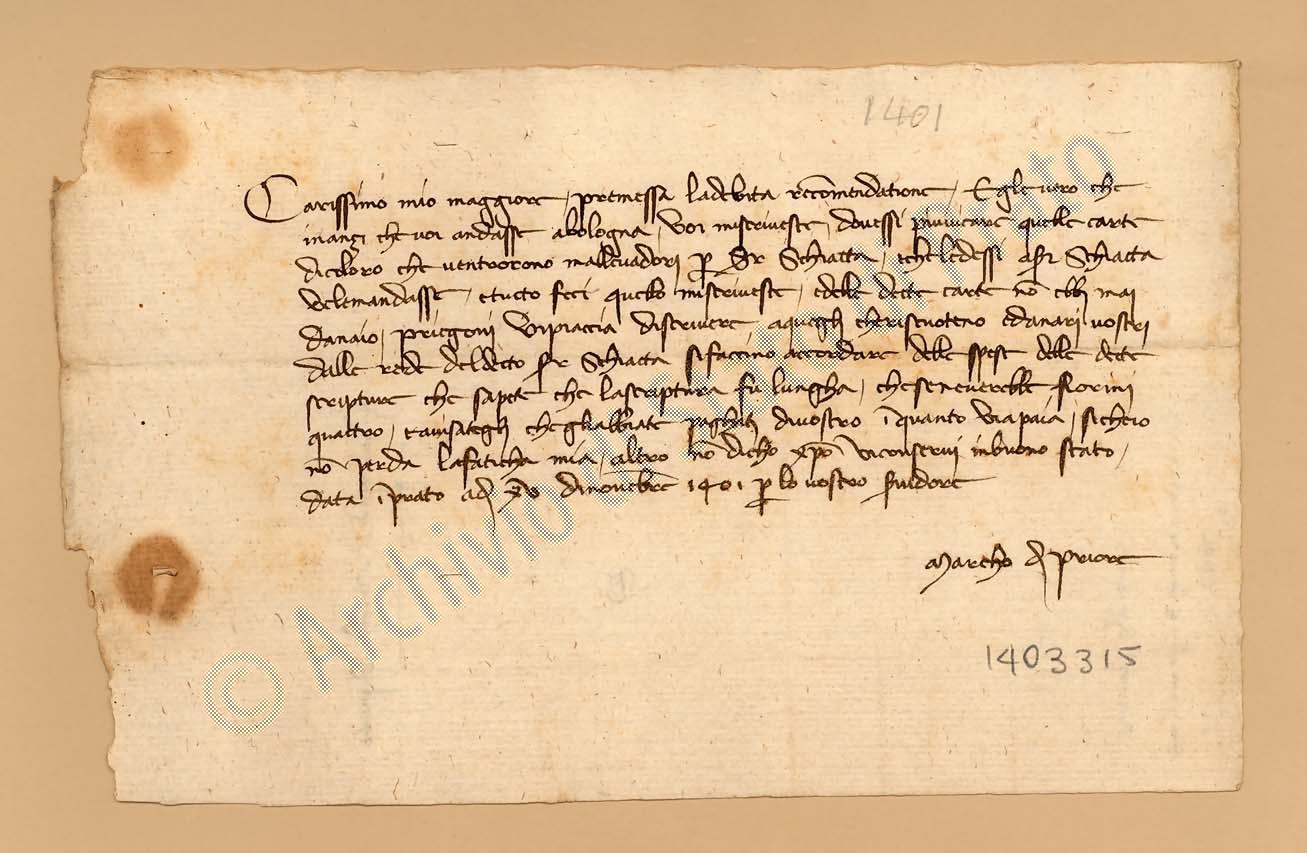 1401
Carissimo mio maggiore, premessa ladebita recomendatione, Egle vero che
inanzi che voi andasse abologna, voi miscriveste, dovessi piuvicare quelle carte
dicoloro che ventrorono mallevadori p Sr Schiatta, chelledessi aser Schiatta
velemandasse, etucto feci quello miscriveste, edelle dette carte nō ebbi mai
danaio, priegovi vipiaccia discrivere aquegli cheriscuoteno edanari vostri
dalle rede deldecto ser Schiatta sifaccino accordare delle spese delle dette
scripture che sapete che lascriptura fu lungha, cheseneverebbe fiorini
quattro, eavisategli chegliabbiate paghati divostro ī quanto viapaia, sicheio
nō perda lafaticha mia, altro nō dicho xpo viconservi inbuono stato,
data ī prato adi xv dinovēbre 1401 p lo vostro servidore
Marcho di Priore
1403315
© Archivio di Stato di Prato